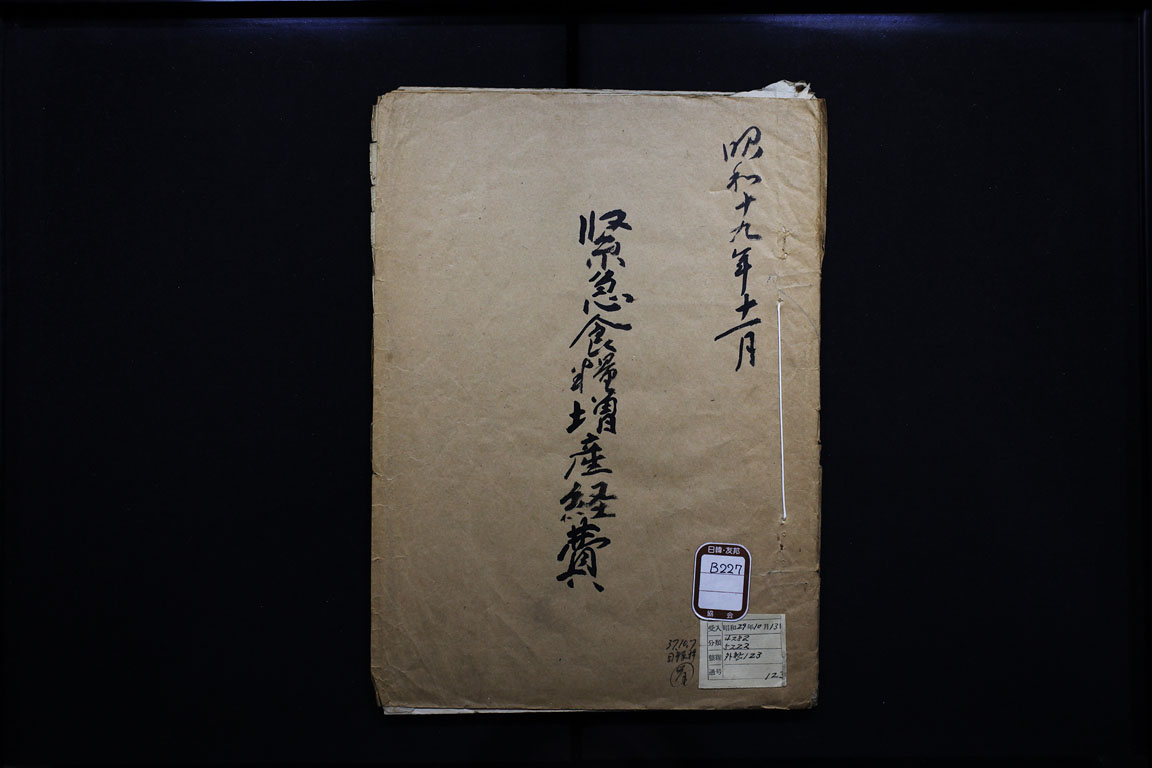 昭和十九年十一月
緊急食糧増産経費
日韓・友邦
B227
協会
受入 昭和29年10月13
分類 4282
5223
整理 外妙123
番号 123
37.10.7